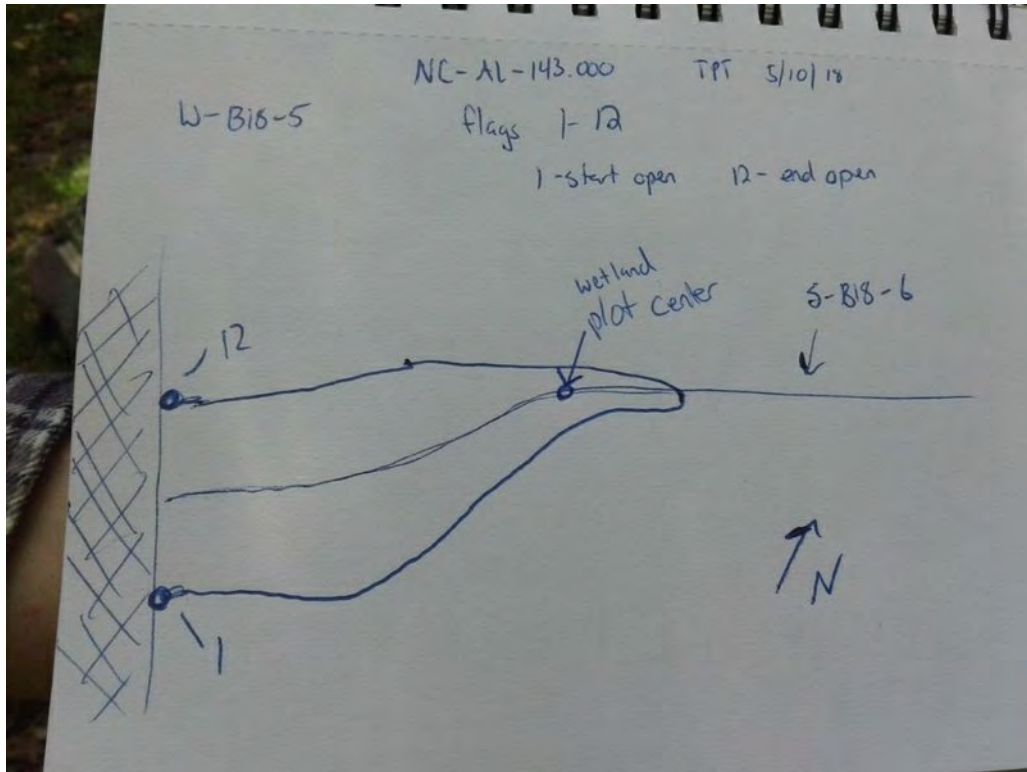 NC-AL-143.000 TPT 5/10/18
W-B18-5 flags 1-12
1-start open 12-end open
wetland
plot center
S-B18-6
12
N
1